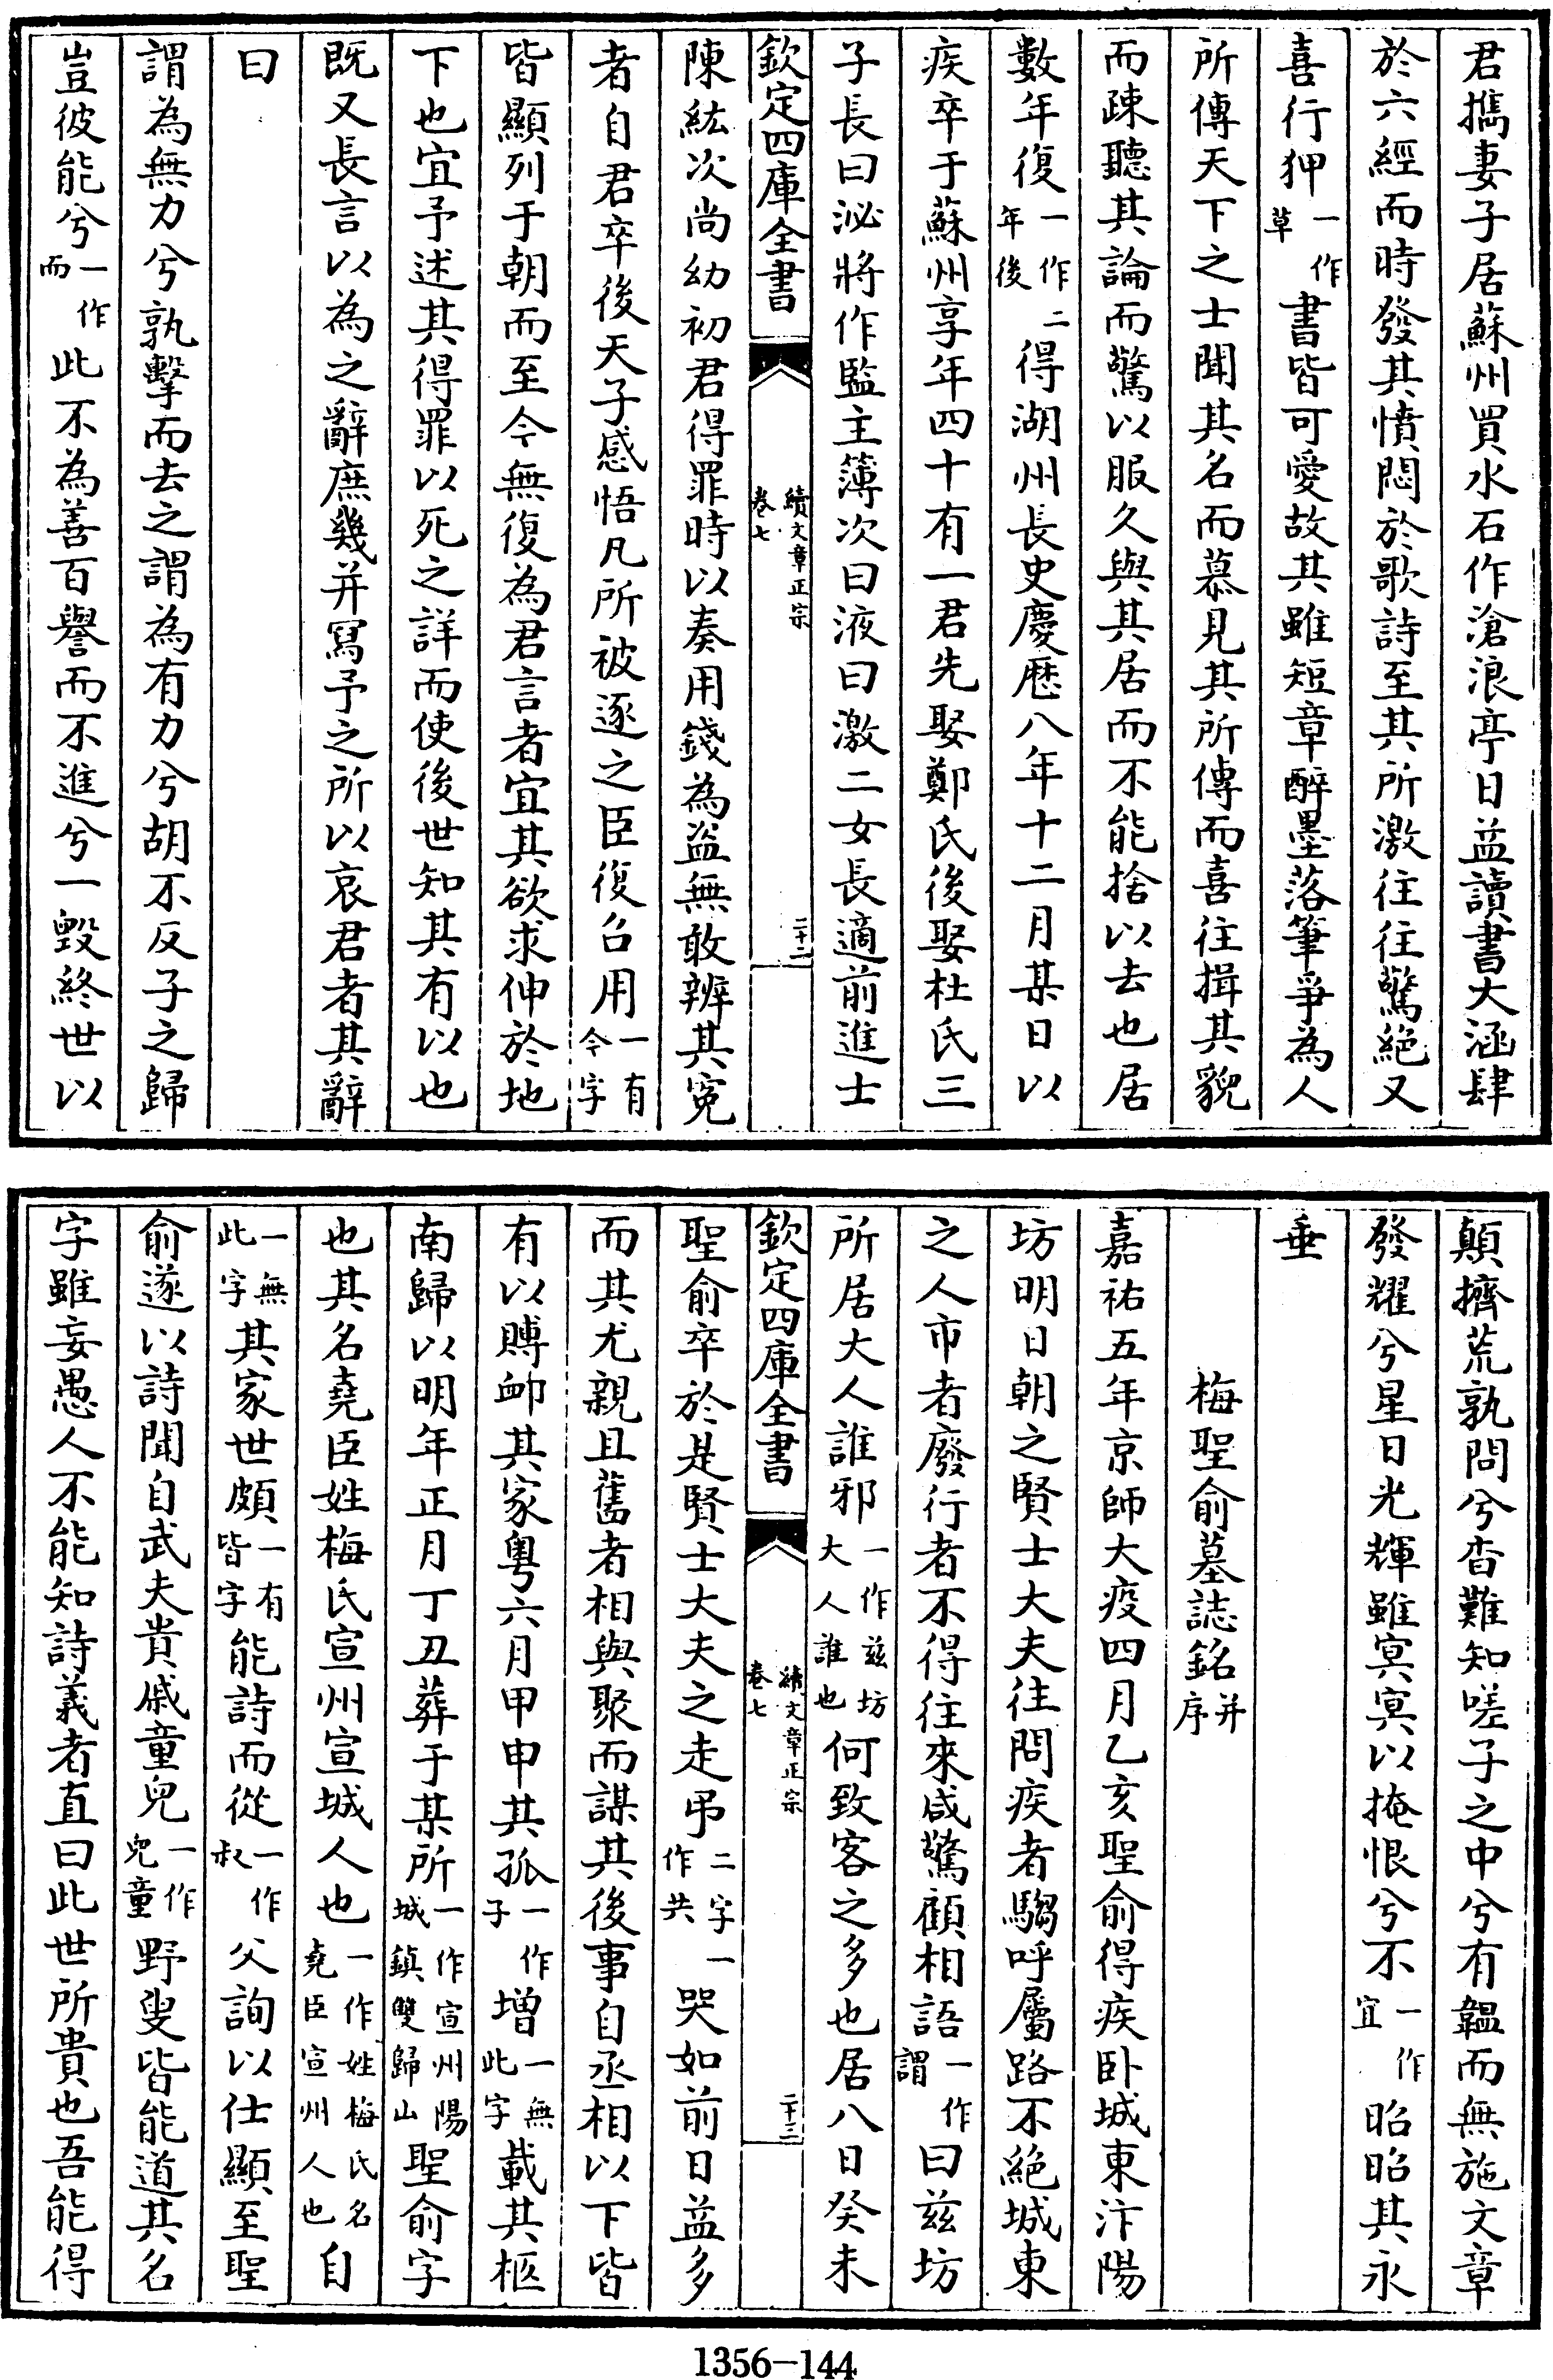 君攜妻子居蘇州買水石作滄浪亭日益讀書大涵肆
於六經而時發其憤悶於歌詩至其所激往往驚絕又
喜行狎一作草書皆可愛故其雖短章醉墨落筆爭為人
所傳天下之士聞其名而慕見其所傳而喜往揖其貌
而疎聽其論而驚以服久與其居而不能捨以去也居
數年復一作年後二得湖州長史慶厯八年十二月某日以
疾卒于蘇州享年四十有一君先娶鄭氏後娶杜氏三
子長曰泌將作監主簿次曰液曰激二女長適前進士
欽定四庫全書 續文章正宗卷七 二十二
陳紘次尚幼初君得罪時以奏用錢為盜無敢辨其寃
者自君卒後天子感悟凡所被逐之臣復召用一有今字
皆顯列于朝而至今無復為君言者宜其欲求伸於地
下也宜予述其得罪以死之詳而使後世知其有以也
既又長言以為之辭庶幾并冩予之所以哀君者其辭
曰
謂為無力兮孰擊而去之謂為有力兮胡不反子之歸
豈彼能兮一作而此不為善百譽而不進兮一毀終世以
顛擠荒孰問兮杳難知嗟子之中兮有韞而無施文章
發耀兮星日光輝雖冥冥以掩恨兮不一作宜昭昭其永
垂
梅聖俞墓誌銘并序
嘉祐五年京師大疫四月乙亥聖俞得疾卧城東汴陽
坊明日朝之賢士大夫往問疾者騶呼屬路不絕城東
之人市者廢行者不得往來咸驚顧相語一作謂曰兹坊
所居大人誰邪一作兹坊大人誰也何致客之多也居八日癸未
欽定四庫全書 續文章正宗卷七 二十三
聖俞卒於是賢士大夫之走弔二字一作共哭如前日益多
而其尤親且舊者相與聚而謀其後事自丞相以下皆
有以賻衈其家粤六月甲申其孤一作子增一無此字載其柩
南歸以明年正月丁丑葬于某所一作宣州陽城鎮雙歸山聖俞字
也其名堯臣姓梅氏宣州宣城人也一作姓梅氏名堯臣宣州人也自
一無此字其家世頗一有皆字能詩而從一作叔父詢以仕顯至聖
俞遂以詩聞自武夫貴戚童兒一作兒童野叟皆能道其名
字雖妄愚人不能知詩義者直曰此世所貴也吾能得
1356-144